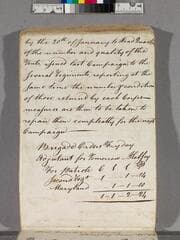 by the 20th of January to Head Quarters
of the number and quality of the
Tents issued last Campaign to the
Several Regiments reporting at the
Same time the number & condition
of those returned by each
measures are then to be taken to
repair them compleatly for the next
Campaign
Brigade Orders Friday
Adjutant for Tomorrow
For Patrick 6 1 1
Second Regt 1 — 1 — 14
Maryland 1 — 1 — 10
1 — 1 — 2 — 24